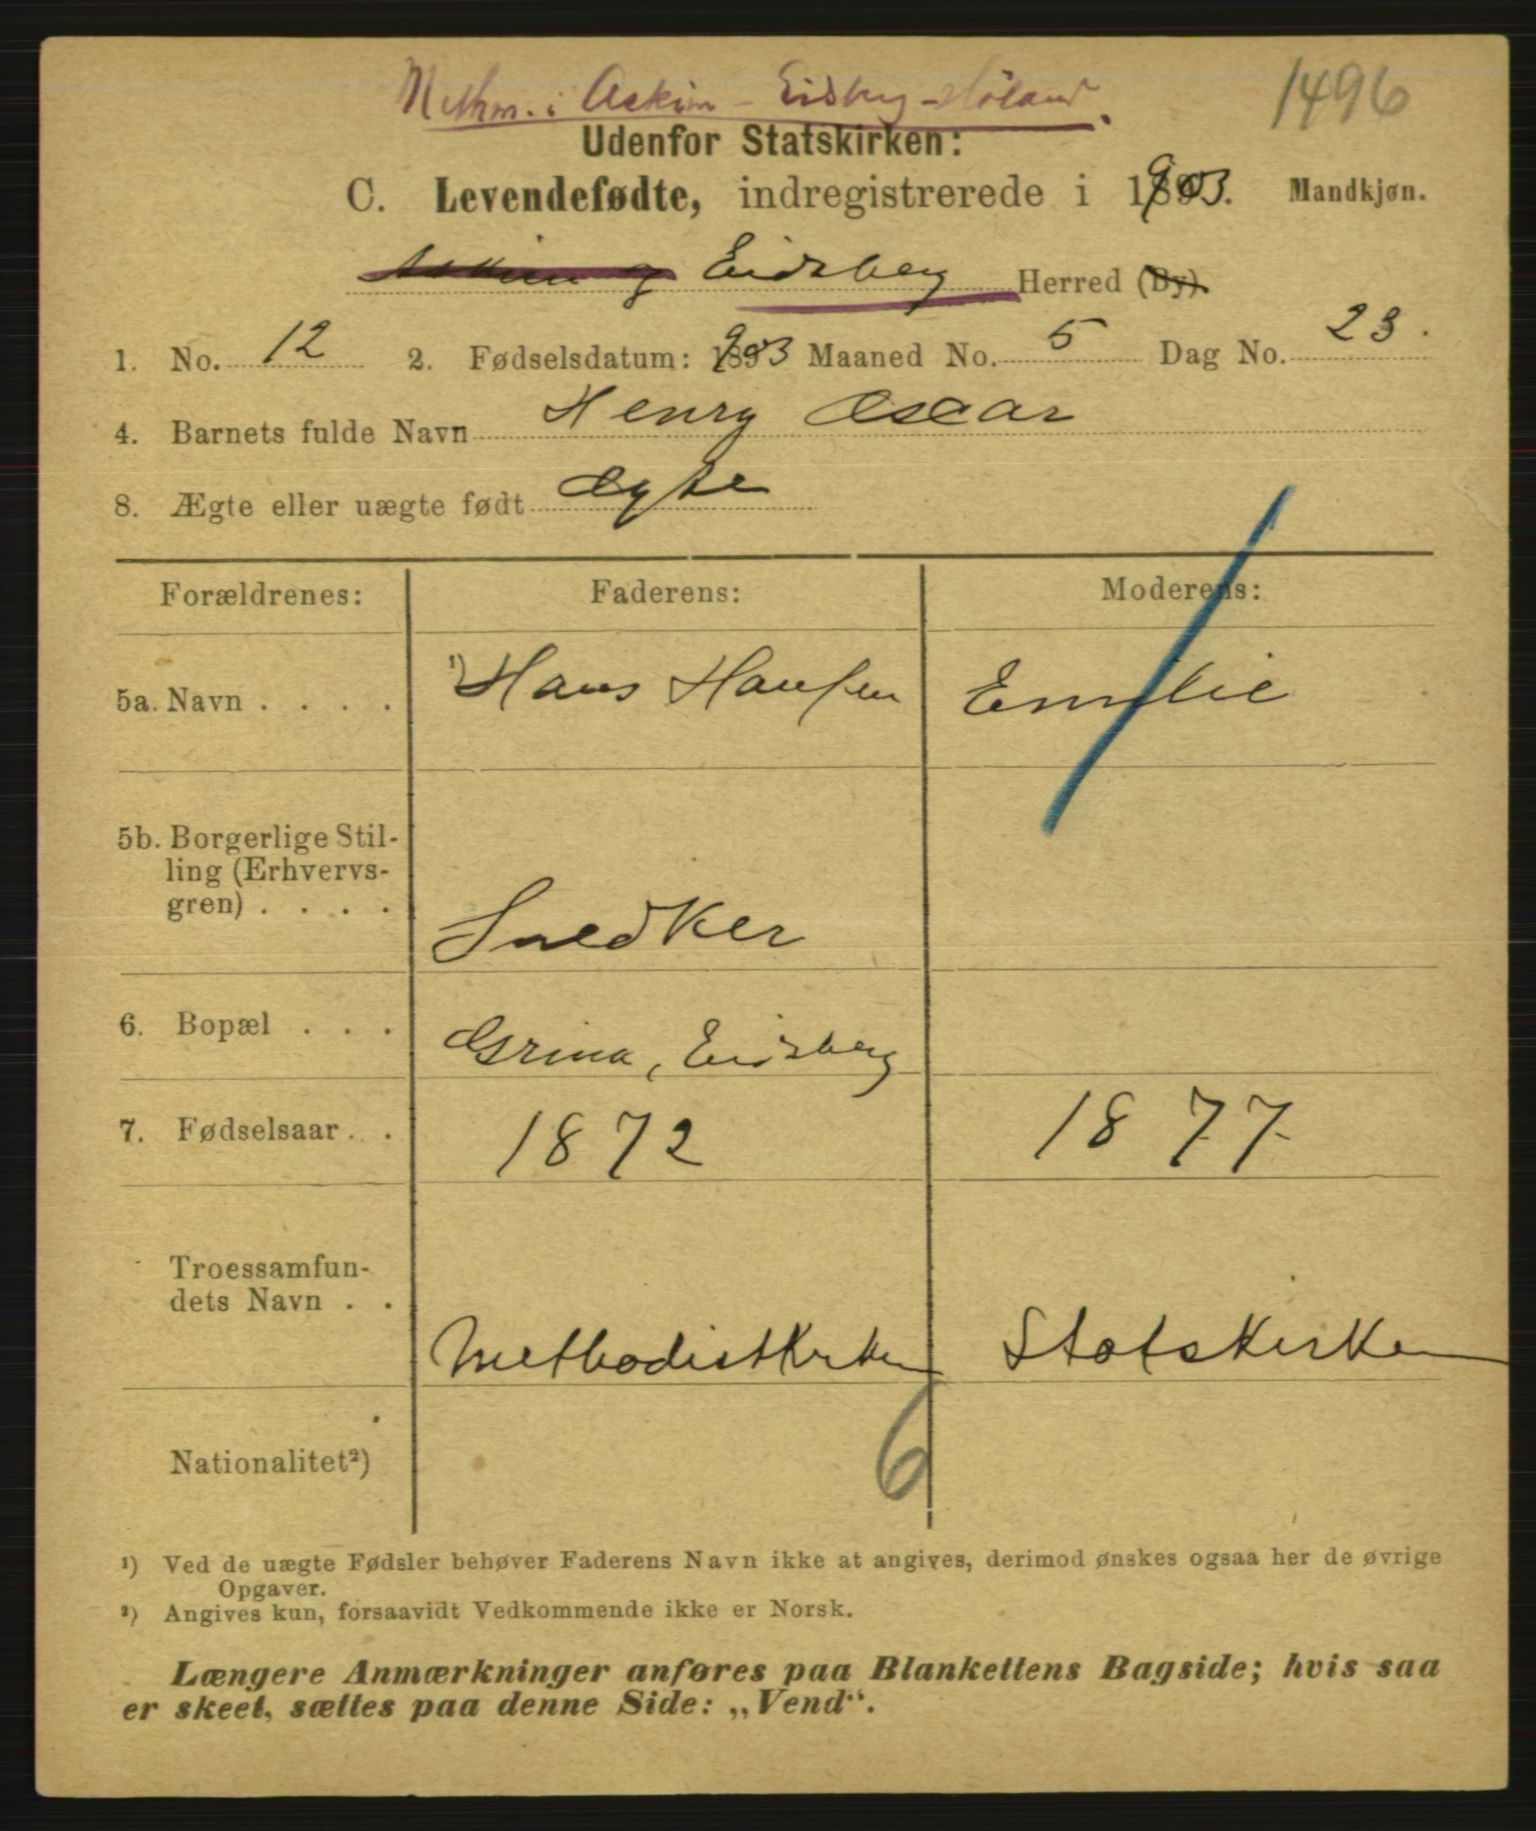 Methm. i Askim - Eidsberg - Høland.
1496
Udenfor Statskirken:
C. Levendefødte, indregistrerede i 1903. Mandkjøn.
Askim og Eidsberg Herred (By).
1. No. 12 2. Fødselsdatum: 1903 Maaned No. 5 Dag No. 23.
4. Barnets fulde Navn Henry Oscar
8. Ægte eller uægte født ægte
Forældrenes: Faderens: Moderens:
5a. Navn . . . . ¹) Hans Hansen Emilie
5b. Borgerlige Stil-
ling (Erhvervs-
gren) . . . . Snedker
6. Bopæl . . . Grina, Eidsberg
7. Fødselsaar . . 1872 1877
Troessamfun-
dets Navn . . Methodistkirken Statskirken
6
Nationalitet²)
¹) Ved de uægte Fødsler behøver Faderens Navn ikke at angives, derimod ønskes ogsaa her de øvrige
Opgaver.
²) Angives kun, forsaavidt Vedkommende ikke er Norsk.
Længere Anmærkninger anføres paa Blankettens Bagside; hvis saa
er skeet, sættes paa denne Side: „Vend“.